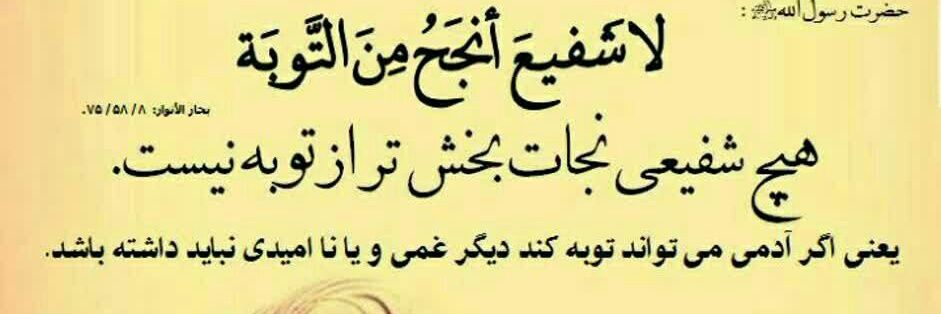 حضرت رسول الله ﷺ :
لا شَفیعَ أنجَحُ مِنَ التَّوبَة
بحار الأنوار: ۸ / ۵۸ / ۷۵.
هیچ شفیعی نجات بخش تر از توبه نیست.
یعنی اگر آدمی می تواند توبه کند دیگر غمی و یا نا امیدی نباید داشته باشد.